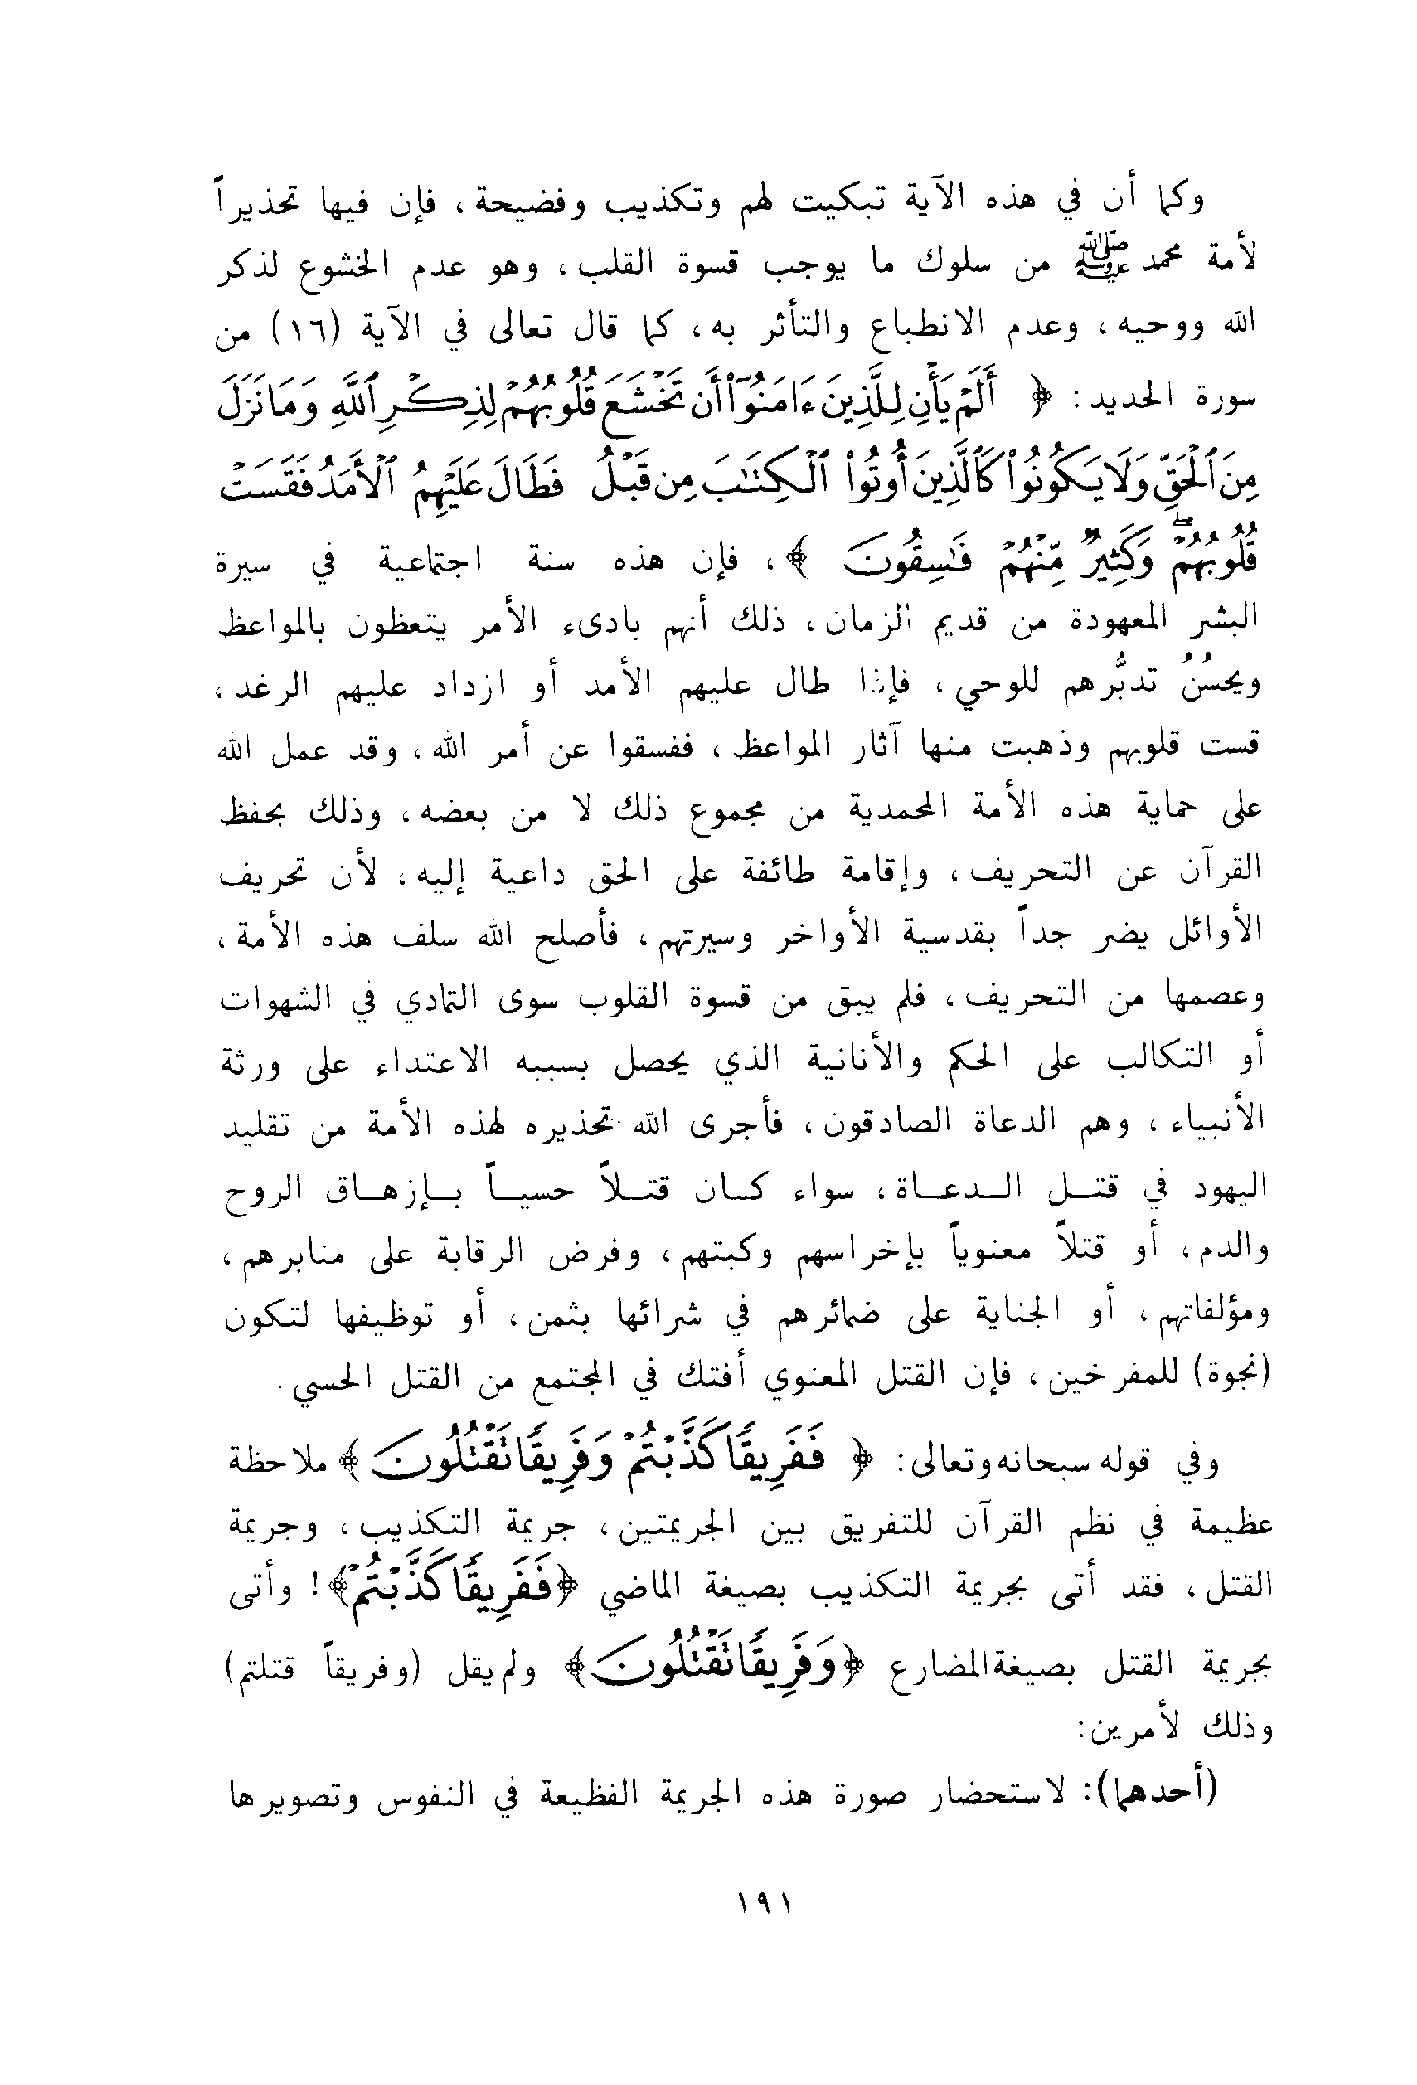 وكما أن في هذه الآية تبكيت لهم وتكذيب وفضيحة، فإن فيها تحذيراً
لأمة محمد ﷺ من سلوك ما يوجب قسوة القلب، وهو عدم الخشوع لذكر
الله ووحيه، وعدم الانطباع والتأثر به، كما قال تعالى في الآية (١٦) من
سورة الحديد: ﴿ أَلَمْ يَأْنِ لِلَّذِينَ ءَامَنُوٓا۟ أَن تَخْشَعَ قُلُوبُهُمْ لِذِكْرِ ٱللَّهِ وَمَا نَزَلَ
مِنَ ٱلْحَقِّ وَلَا يَكُونُوا۟ كَٱلَّذِينَ أُوتُوا۟ ٱلْكِتَٰبَ مِن قَبْلُ فَطَالَ عَلَيْهِمُ ٱلْأَمَدُ فَقَسَتْ
قُلُوبُهُمْ ۖ وَكَثِيرٌ مِّنْهُمْ فَٰسِقُونَ ﴾، فإن هذه سنة اجتماعية في سيرة
البشر المعهودة من قديم الزمان، ذلك أنهم بادىء الأمر يتعظون بالمواعظ
ويحسُنُ تدبُّرهم للوحي، فإذا طال عليهم الأمد أو ازداد عليهم الرغد،
قست قلوبهم وذهبت منها آثار المواعظ، ففسقوا عن أمر الله، وقد عمل الله
على حماية هذه الأمة المحمدية من مجموع ذلك لا من بعضه، وذلك بحفظ
القرآن عن التحريف، وإقامة طائفة على الحق داعية إليه، لأن تحريف
الأوائل يضر جداً بقدسية الأواخر وسيرتهم، فأصلح الله سلف هذه الأمة،
وعصمها من التحريف، فلم يبق من قسوة القلوب سوى التمادي في الشهوات
أو التكالب على الحكم والأنانية الذي يحصل بسببه الاعتداء على ورثة
الأنبياء، وهم الدعاة الصادقون، فأجرى الله تحذيره لهذه الأمة من تقليد
اليهود في قتل الدعاة، سواء كان قتلاً حسياً بإزهاق الروح
والدم، أو قتلاً معنوياً بإخراسهم وكبتهم، وفرض الرقابة على منابرهم،
ومؤلفاتهم، أو الجناية على ضمائرهم في شرائها بثمن، أو توظيفها لتكون
(نجوة) للمفرخين، فإن القتل المعنوي أفتك في المجتمع من القتل الحسي.
وفي قوله سبحانه وتعالى: ﴿ فَفَرِيقًا كَذَّبْتُمْ وَفَرِيقًا تَقْتُلُونَ ﴾ ملاحظة
عظيمة في نظم القرآن للتفريق بين الجريمتين، جريمة التكذيب، وجريمة
القتل، فقد أتى بجريمة التكذيب بصيغة الماضي ﴿فَفَرِيقًا كَذَّبْتُمْ﴾! وأتى
بجريمة القتل بصيغة المضارع ﴿وَفَرِيقًا تَقْتُلُونَ﴾ ولم يقل (وفريقاً قتلتم)
وذلك لأمرين:
(أحدهما): لاستحضار صورة هذه الجريمة الفظيعة في النفوس وتصويرها
١٩١